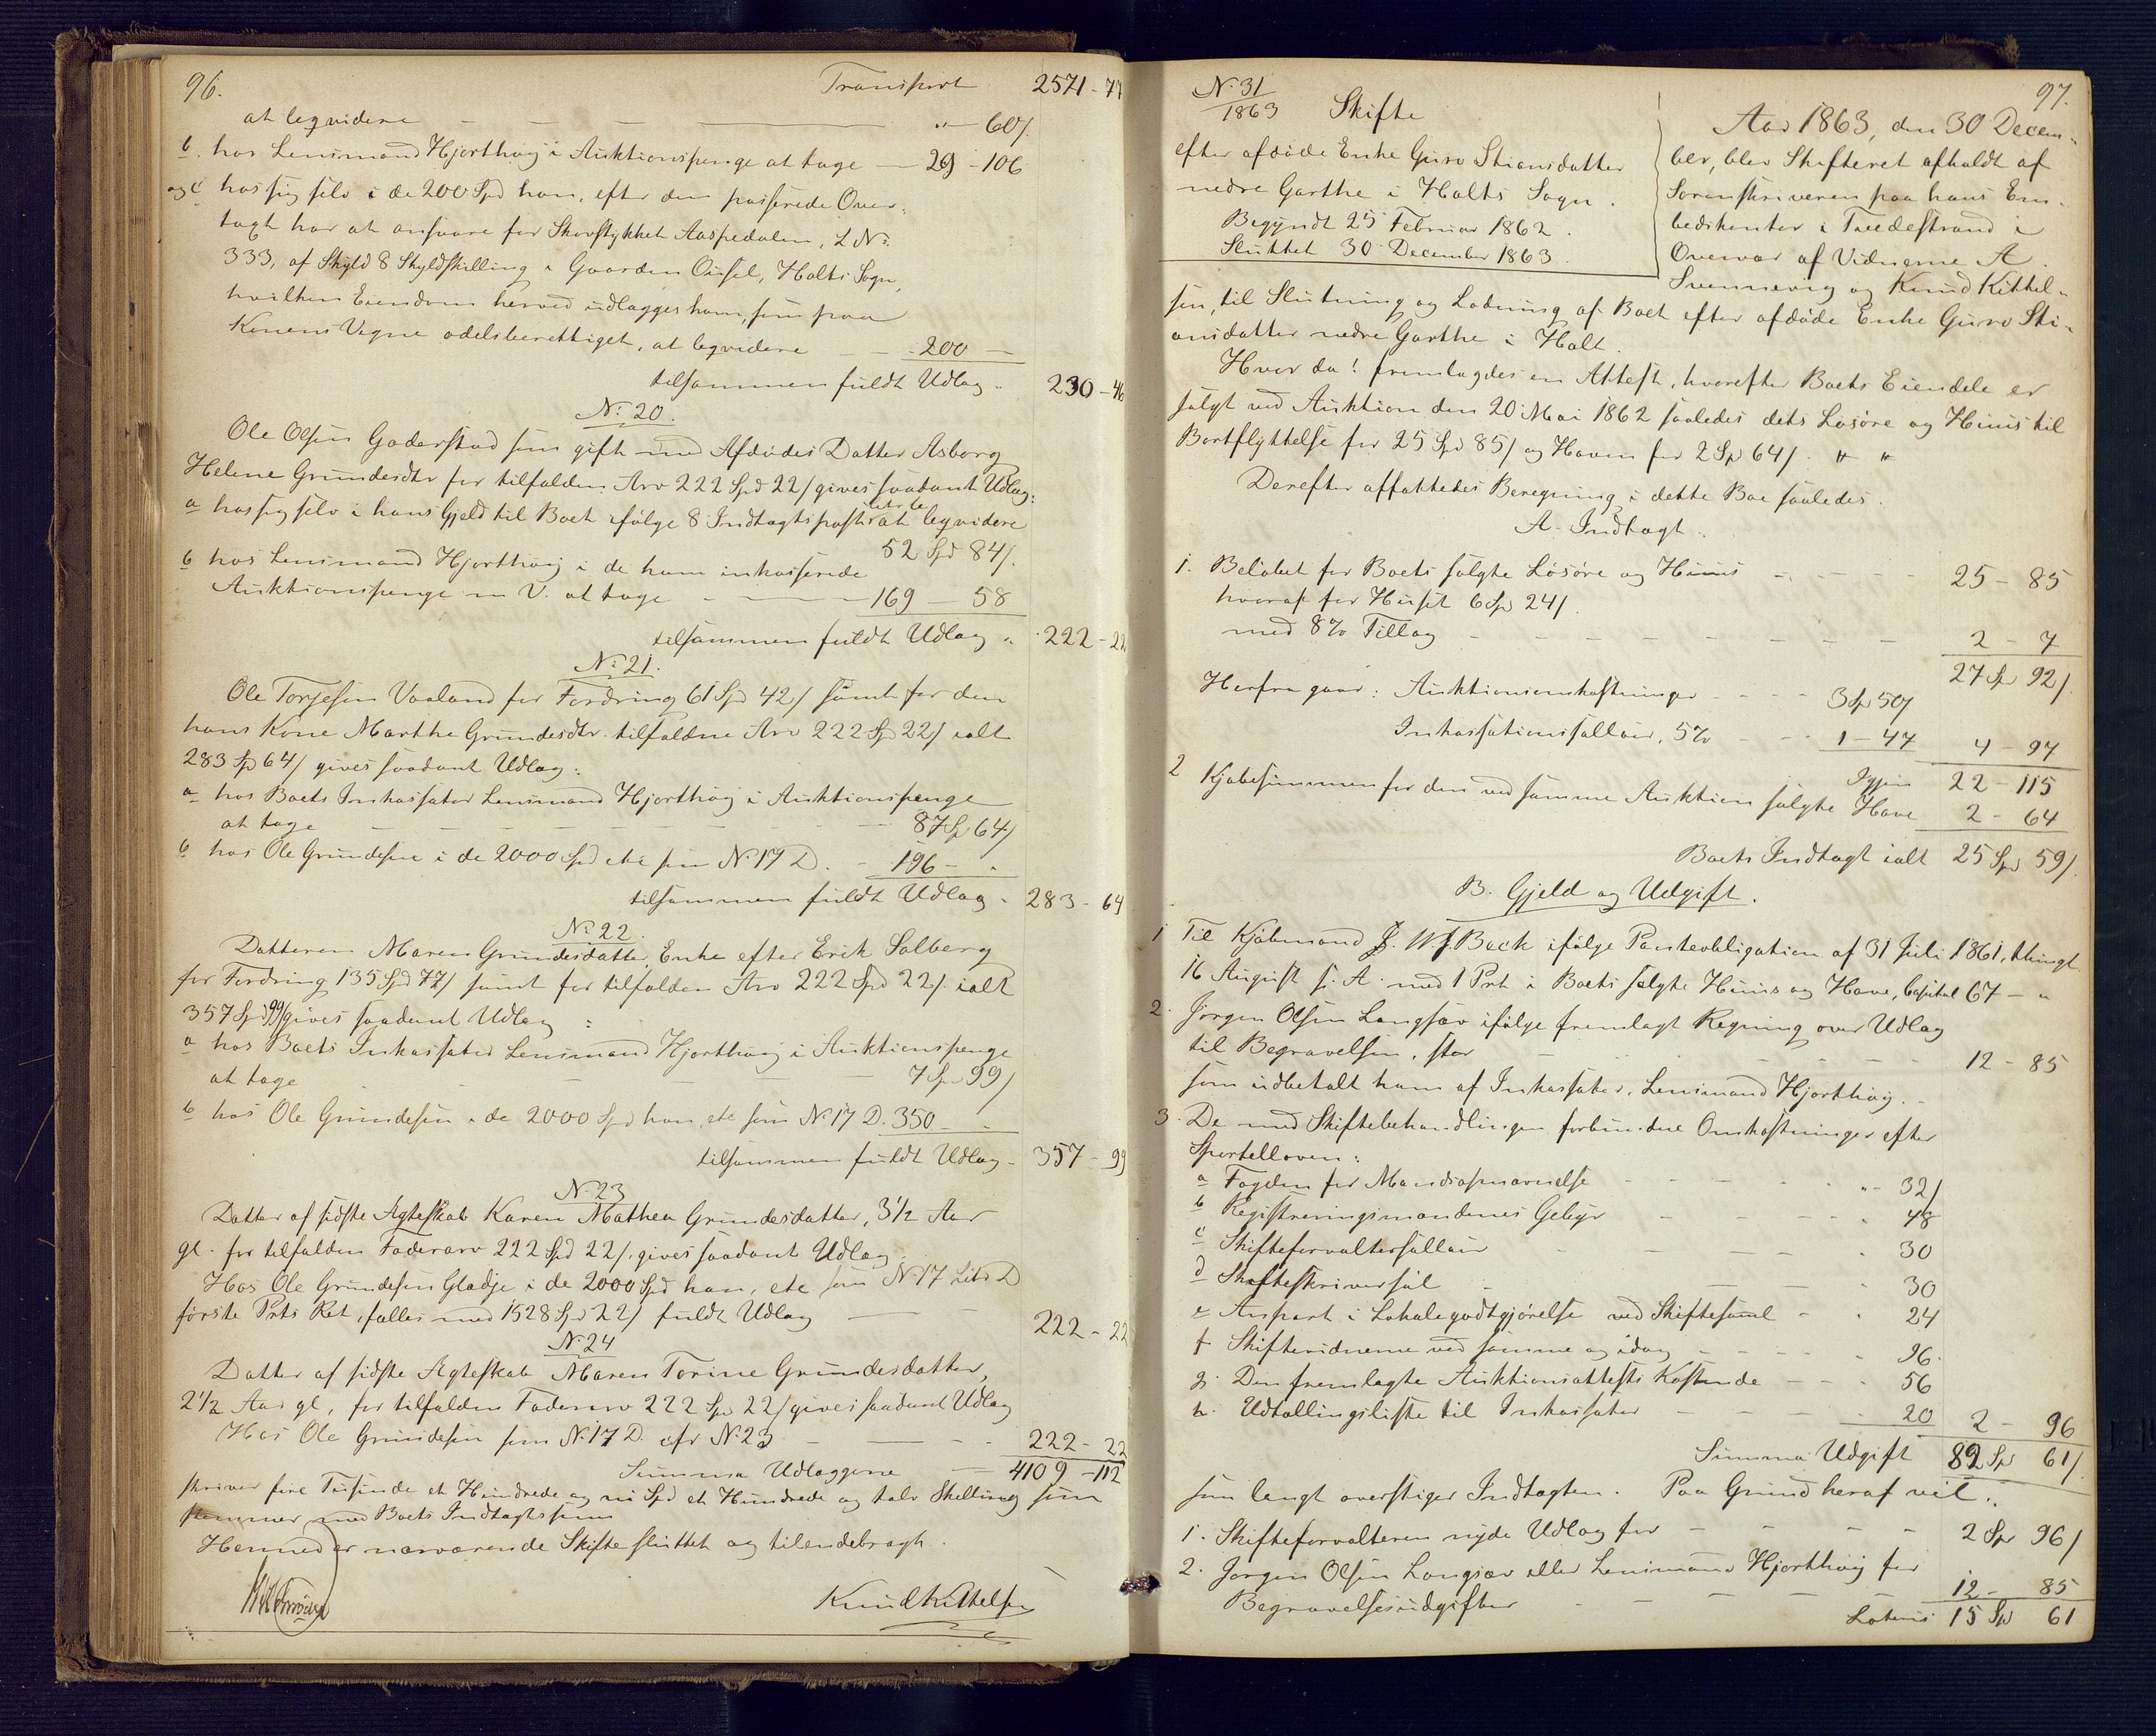 96.
Transport 2571 - 77
at leqvidere " - 60/.
b. hos Lensmand Hjorthøy i Auktionspenge at tage 29 - 106
og c hos sig selv i de 200 Spd han, efter den passerede Over-
tagt har at ansvare for Skovstykket Aaspedalen, L No:
333, af Skyld 8 Skyldskilling i Gaarden Ousel, Holts Sogn,
hvilken Eiendom herved udlægges ham, som paa
Konens Vegne odelsberettiget, at leqvidere 200 -
tilsammen fuldt Udlæg 230 - 46
No: 20.
Ole Olsen Goderstad som gift med Afdødes Datter Asborg
Helene Grundesdtr for tilfalden Arv 222 Spd 22/ gives saadant Udlæg:
a hos sig selv i hans Gjeld til Boet ifølge 8 Indtægtspost at leqvidere
52 Spd 84/.
b hos Lensmand Hjorthøy i de ham inkasserede
Auktionspenge m V. at tage 169 - 58
tilsammen fuldt Udlæg " 222 - 22
No: 21.
Ole Torjesen Vaaland for Fordring 61 Spd 42/ samt for den
hans Kone Marthe Grundesdtr. tilfaldne Arv 222 Spd 22/ ialt
283 Spd 64/ gives saadant Udlæg:
a hos Boets Inkassator Lensmand Hjorthøy i Auktionspenge
at tage 87 Sp 64/
b hos Ole Grundesen i de 2000 Spd etc som No 17 D. 196 - "
tilsammen fuldt Udlæg - 283 - 64
No: 22.
Datteren Maren Grundesdatter, Enke efter Erik Solberg
for Fordring 135 Spd 77/ samt for tilfalden Arv 222 Spd 22/. ialt
357 Spd 99/ gives saadant Udlæg:
a hos Boets Inkassator Lensmand Hjorthøy i Auktionspenge
at tage 7 Sp 99/
b hos Ole Grundesen i de 2000 Spd han, etc som No 17 D. 350 -
tilsammen fuldt Udlæg - 357 - 99
No 23
Datter af sidste Ægteskab Karen Mathea Grundesdatter, 3 1/2 Aar
gl. for tilfalden Faderarv 222 Spd 22/. gives saadant Udlæg:
Hos Ole Grundesen Gladje i de 2000 Spd han, etc som No 17 Litr D
første Prts Ret, fælles med 1528 Spd 22/ fuldt Udlæg 222 - 22
No 24
Datter af sidste Ægteskab Maren Torine Grundesdatter,
2 1/2 Aar gl, for tilfalden Faderarv 222 Spd 22/ gives saadant Udlæg
Hos Ole Grundesen som No. 17 D. cfr No. 23 222 - 22
Summa Udlæggene 4109 - 112
skriver fire Tusinde et Hundrede og ni Spd et Hundrede og tolv Skilling som
stemmer med Boets Indtægtssum
Hermed er nærværende Skifte sluttet og tilendebragt.
Knud Kittelsen
97.
No. 31
1863
Skifte
efter afdøde Enke Guro Stiansdatter
nedre Garthe i Holts Sogn.
Begyndt 25 Februar 1862.
Sluttet 30 December 1863.
Aar 1863, den 30 Decem-
ber, blev Skifteret afholdt af
Sorenskriveren paa hans Em-
bedskontor i Tvedestrand i
Overvær af Vidnerne A.
Svennevig og Knud Kittel-
sen, til Slutning og Lodning af Boet efter afdøde Enke Guro Sti-
ansdatter nedre Garthe i Holt.
Hvor da! fremlagdes en Attest, hvorefter Boets Eiendele er
solgt ved Auktion den 20 Mai 1862 saaledes dets Løsøre og Huus til
Bortflyttelse for 25 Spd 85/ og Haven for 2 Sp 64/. " "
Derefter affattedes Beregning i dette Boe saaledes.
A. Indtægt.
1. Beløbet for Boets solgte Løsøre og Huus 25 - 85
hvoraf for Huset 6 Sp 24/.
med 8% Tillæg 2 - 7
27 Sp 92/.
Herfra gaar: Auktionsomkostninger 3 Sp 50/
Inkassationssallair, 5% 1 - 47 4 - 97
Igjen 22 - 115
2 Kjøbesummen for den ved samme Auktion solgte Have 2 - 64
Boets Indtægt ialt 25 Spd 59/.
B. Gjeld og Udgift.
1 Til Kjøbmand J. W. J Beck ifølge Panteobligation af 31 Juli 1861, thingl.
16 August s. A. med 1 Prt i Boets solgte Huus og Have, Capital 67 - "
2. Jørgen Olsen Langsæv ifølge fremlagt Regning over Udlæg
til Begravelsen, stor 12 - 85
som udbetalt ham af Inkassator, Lensmand Hjorthøy.
3. De med Skiftebehandlingen forbundne Omkostninger efter
Sportelloven:
a Fogden for Mandsopnævnelse " - 32/
b Registreringsmændenes Gebyr 48
c Skifteforvaltersallair 30
d Skifteskriversal 30
e Anpart i Lokalegodtgjørelse ved Skiftesaml 24
f Skiftevidnerne ved samme og idag 96.
g. Den fremlagte Auktionsattests Kostende 56
h. Udtællingsliste til Inkassator 20 2 - 96
Summa Udgift 82 Sp 61/.
som langt overstiger Indtægten. Paa Grund heraf vil:
1. Skifteforvalteren nyde Udlæg for 2 Sp 96/
2. Jørgen Olsen Langsæv eller Lensmand Hjorthøy for
Begravelsesudgifter 12 - 85
Lateris 15 Sp 61